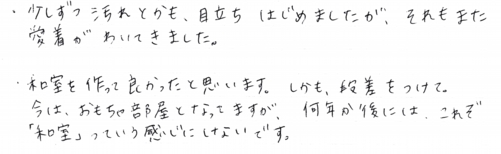 ・少しずつ汚れとかも、目立ちはじめましたが、それもまた
愛着がわいてきました。
・和室を作って良かったと思います。しかも、段差をつけて。
今は、おもちゃ部屋となってますが、何年か後には、これぞ
「和室」っていう感じにしたいです。